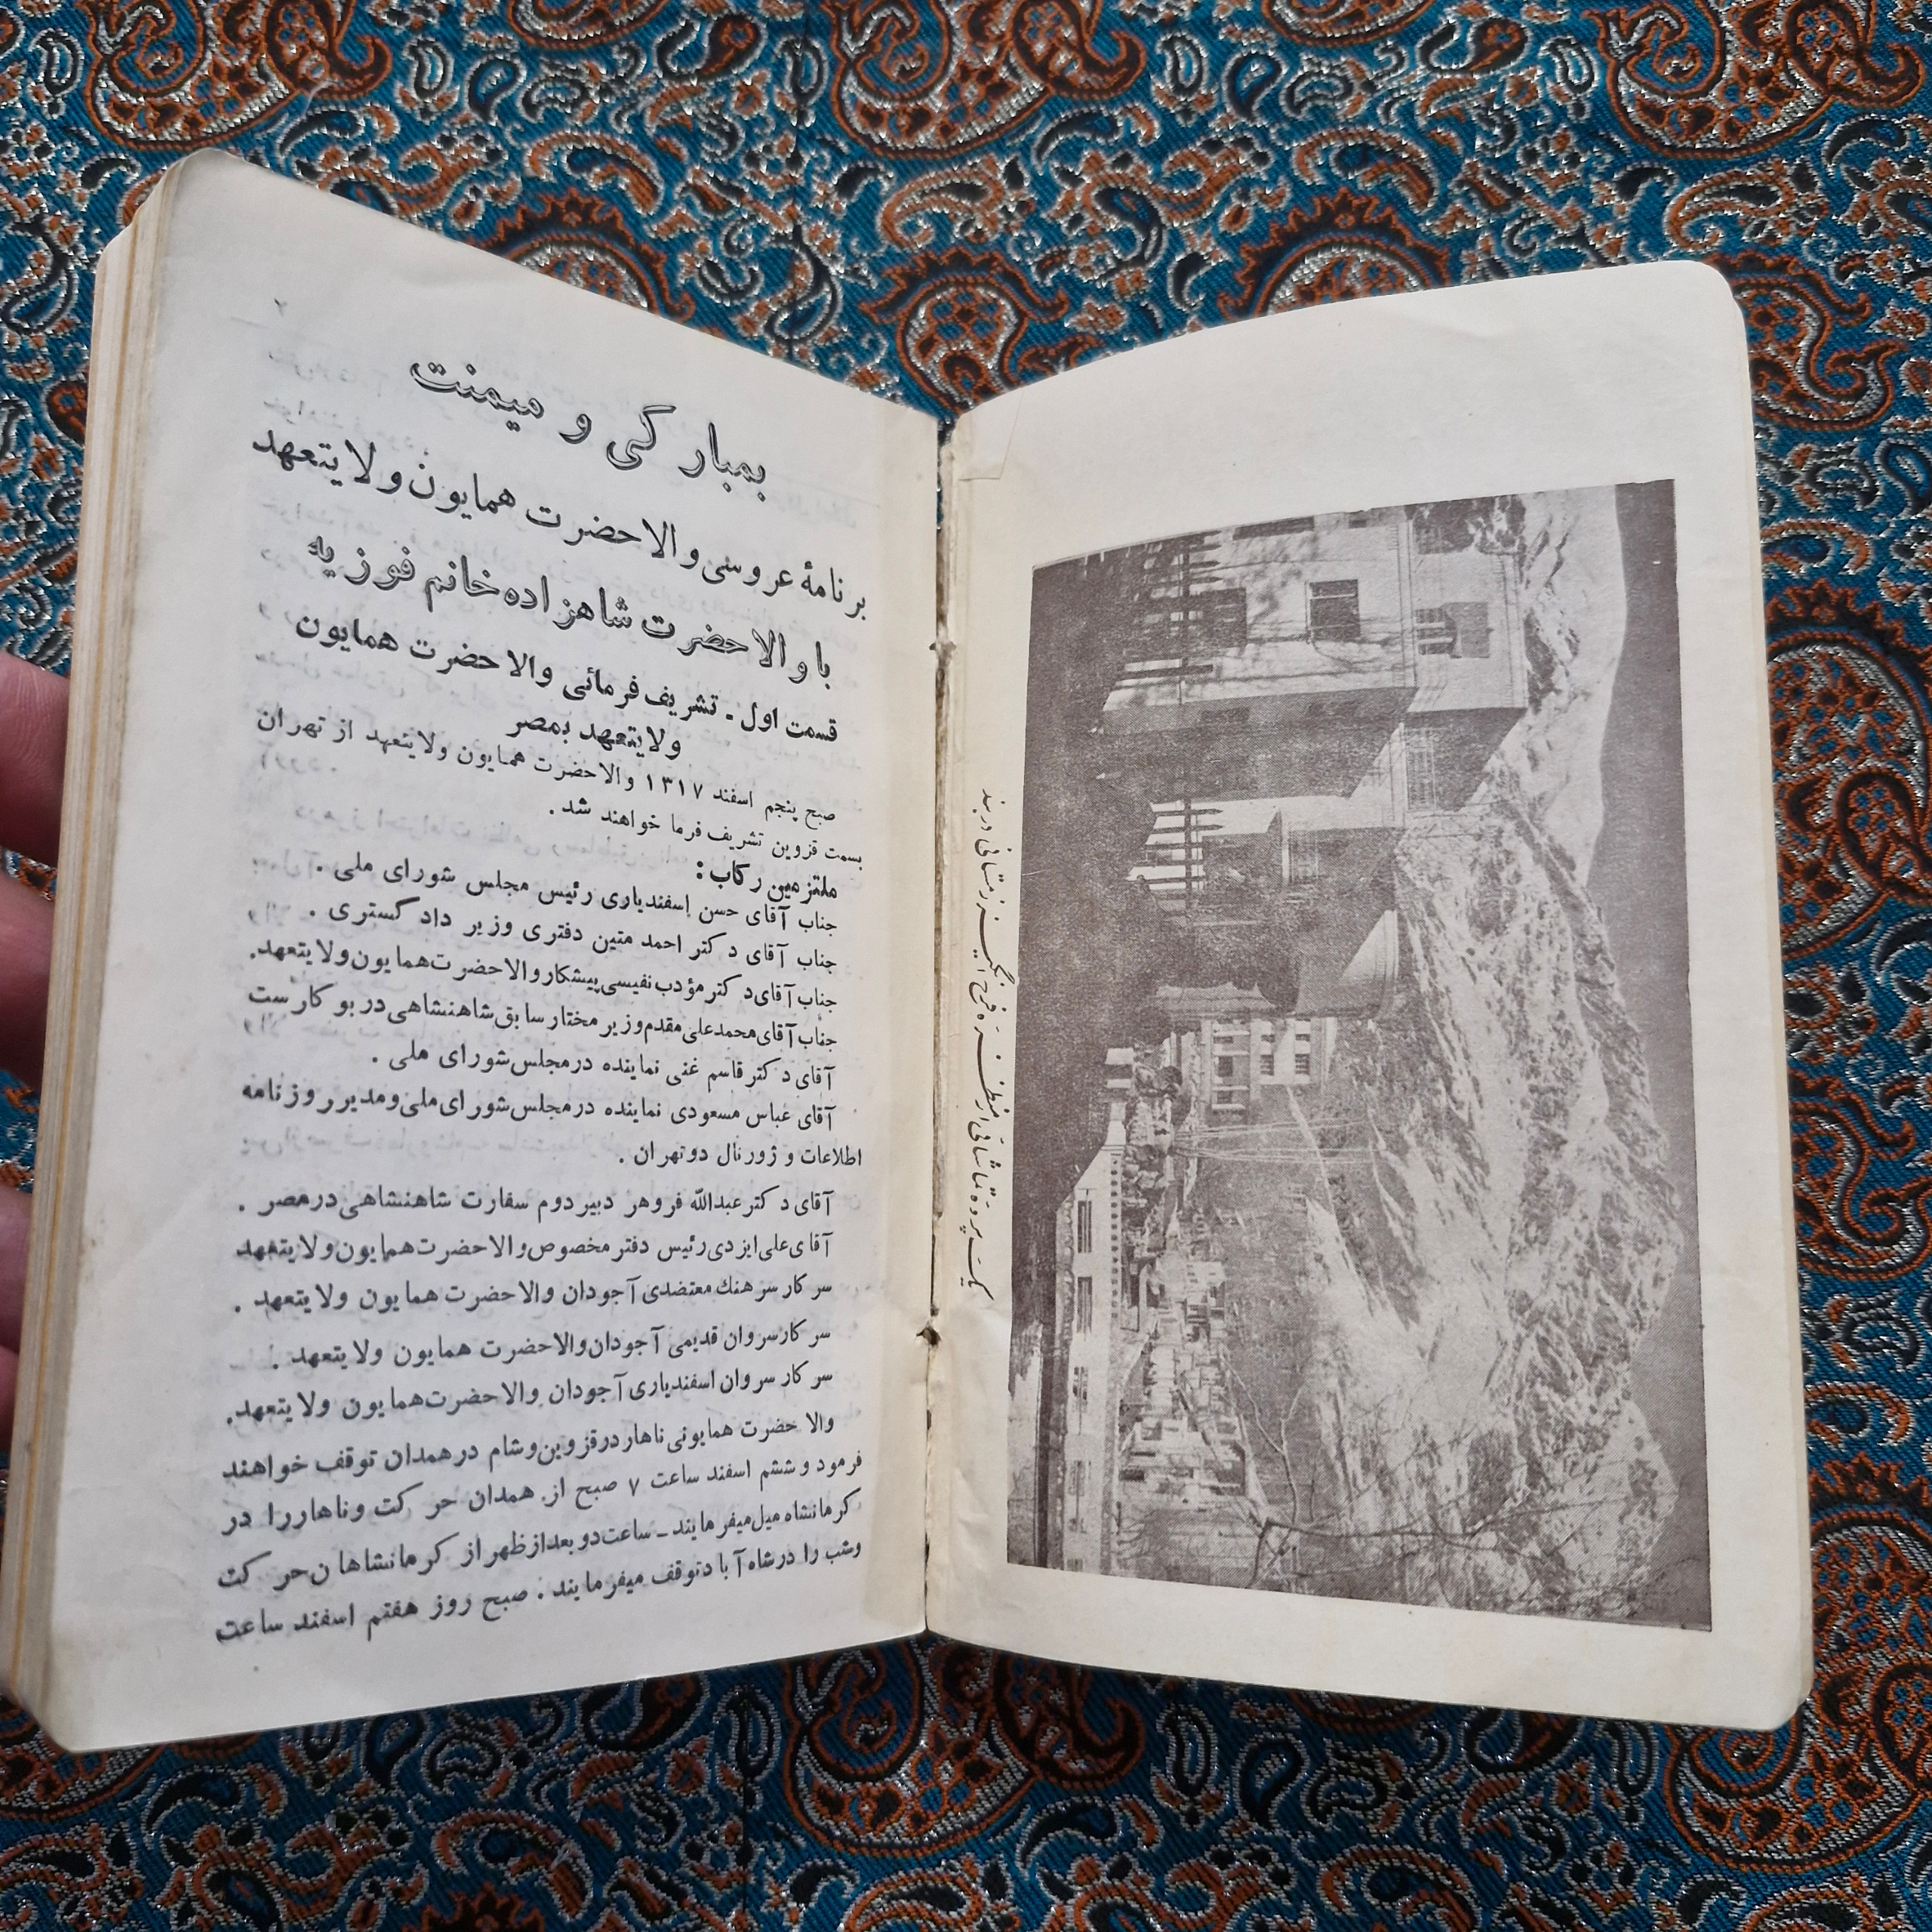 یک پرده تماشائی از منظره فرح انگیز زمستانی دربند
۲
بمبارکی و میمنت
برنامهٔ عروسی والاحضرت همایون ولایتعهد
با والاحضرت شاهزاده خانم فوزیه
قسمت اول - تشریف فرمائی والاحضرت همایون
ولایتعهد بمصر
صبح پنجم اسفند ۱۳۱۷ والاحضرت همایون ولایتعهد از تهران
بسمت قزوین تشریف فرما خواهند شد .
ملتزمین رکاب :
جناب آقای حسن اسفندیاری رئیس مجلس شورای ملی .
جناب آقای دکتر احمد متین دفتری وزیر دادگستری .
جناب آقای دکتر مؤدب نفیسی پیشکار والاحضرت همایون ولایتعهد.
جناب آقای محمدعلی مقدم وزیر مختار سابق شاهنشاهی در بوکارست
آقای دکتر قاسم غنی نماینده در مجلس شورای ملی .
آقای عباس مسعودی نماینده در مجلس شورای ملی و مدیر روزنامه
اطلاعات و ژورنال دوتهران .
آقای دکتر عبدالله فروهر دبیر دوم سفارت شاهنشاهی در مصر .
آقای علی ایزدی رئیس دفتر مخصوص والاحضرت همایون ولایتعهد
سرکار سرهنگ معتضدی آجودان والاحضرت همایون ولایتعهد .
سرکار سروان قدیمی آجودان والاحضرت همایون ولایتعهد .
سرکار سروان اسفندیاری آجودان والاحضرت همایون ولایتعهد.
والا حضرت همایونی ناهار در قزوین و شام در همدان توقف خواهند
فرمود و ششم اسفند ساعت ۷ صبح از همدان حرکت و ناهار را در
کرمانشاه میل میفرمایند - ساعت دو بعد از ظهر از کرمانشاهان حرکت
و شب را در شاه آباد توقف میفرمایند . صبح روز هفتم اسفند ساعت